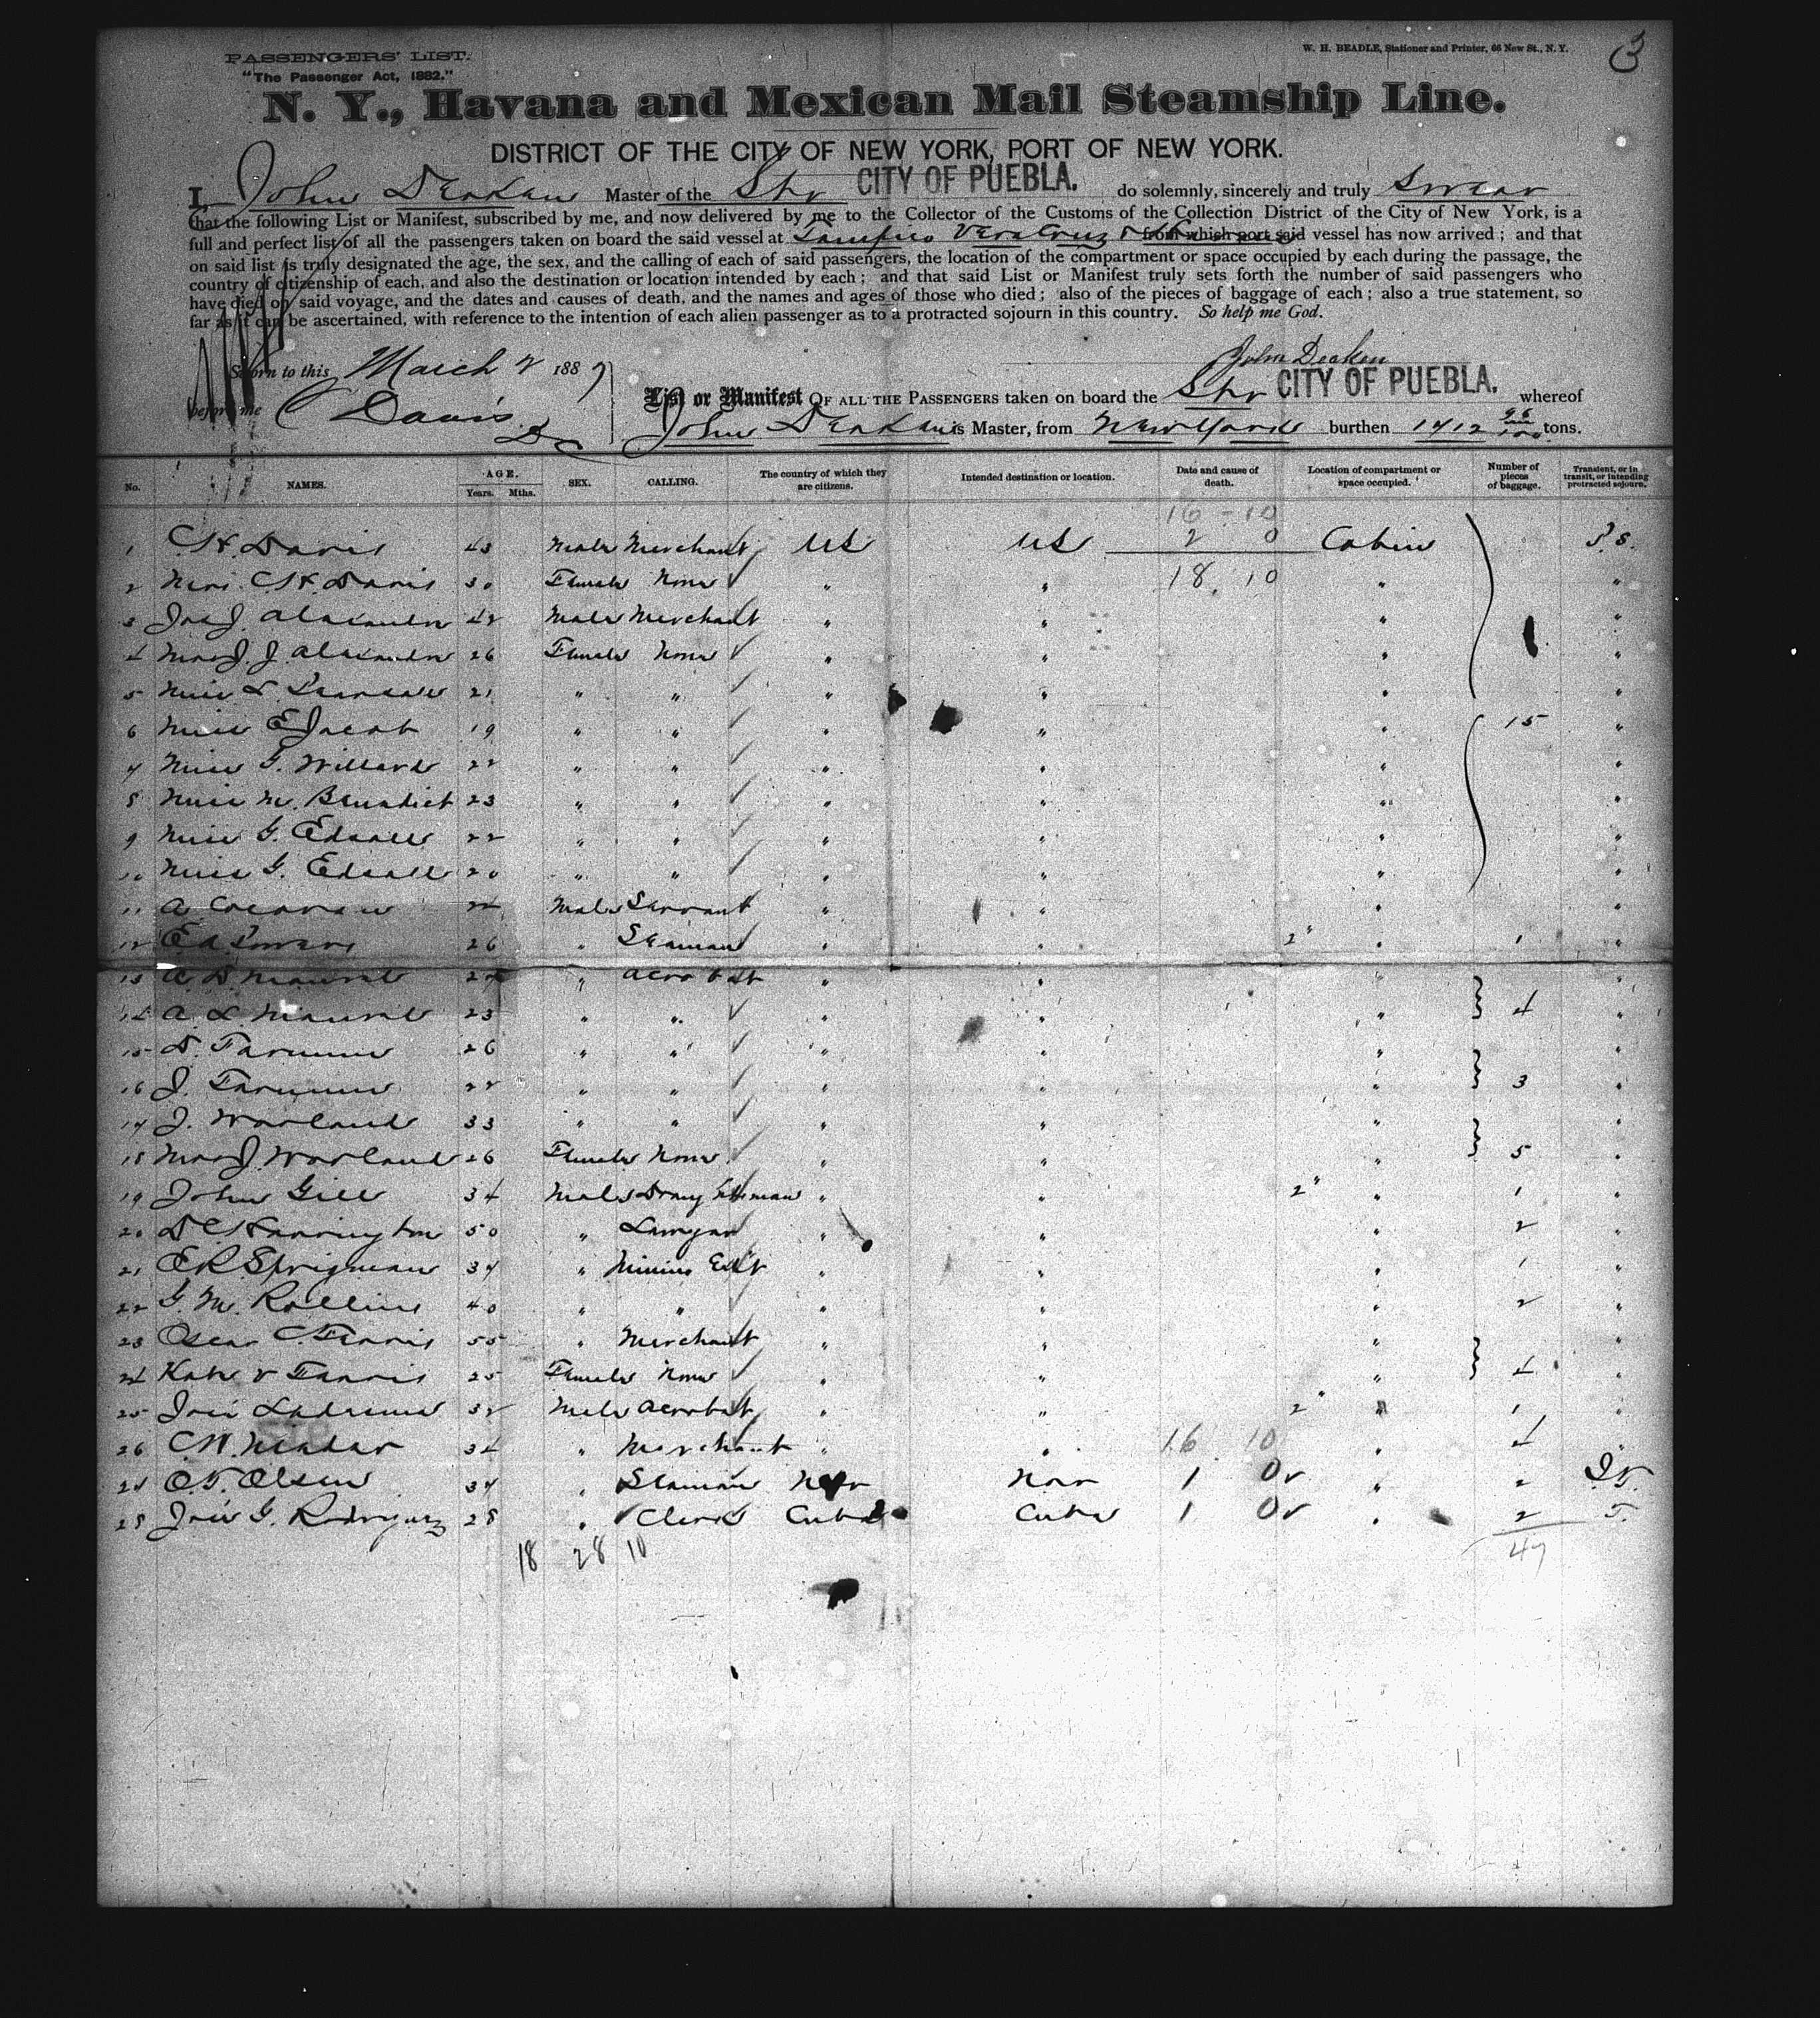 PASSENGERS' LIST.
"The Passenger Act, 1882."
W. H. BEADLE, Stationer and Printer, 66 New St., N. Y.
3
N. Y., Havana and Mexican Mail Steamship Line.
DISTRICT OF THE CITY OF NEW YORK, PORT OF NEW YORK.
I, John Deaken Master of the Str CITY OF PUEBLA. do solemnly, sincerely and truly swear
that the following List or Manifest, subscribed by me, and now delivered by me to the Collector of the Customs of the Collection District of the City of New York, is a
full and perfect list of all the passengers taken on board the said vessel at Tampico Vera Cruz & from which port said vessel has now arrived; and that
on said list is truly designated the age, the sex, and the calling of each of said passengers, the location of the compartment or space occupied by each during the passage, the
country of citizenship of each, and also the destination or location intended by each; and that said List or Manifest truly sets forth the number of said passengers who
have died on said voyage, and the dates and causes of death, and the names and ages of those who died; also of the pieces of baggage of each; also a true statement, so
far as it can be ascertained, with reference to the intention of each alien passenger as to a protracted sojourn in this country. So help me God.
John Deaken
Sworn to this March 2 1887
before me C Davis
List or Manifest OF ALL THE PASSENGERS taken on board the Str CITY OF PUEBLA. whereof
John Deaken is Master, from New York burthen 1412 96/100 tons.
No. NAMES. AGE. Years. Mths. SEX. CALLING. The country of which they are citizens. Intended destination or location. Date and cause of death. Location of compartment or space occupied. Number of pieces of baggage. Transient, or in transit, or intending protracted sojourn.
16 - 10
1 C H Davis 43 Male Merchant US US 2 0 Cabin P.S.
2 Mrs. C H Davis 30 Female None " " 18 10 " "
3 Jas J. Alexander 42 Male Merchant " " " "
4 Mrs J. J. Alexander 26 Female None " " " "
5 Miss L 21 " " " " " "
6 Miss E Jacob 19 " " " " " 15 "
7 Miss G. Willard 22 " " " " " "
8 Miss M. Benedict 23 " " " " " "
9 Miss G. Edsall 22 " " " " " "
10 Miss G. Edsall 20 " " " " " "
11 A Male Servant " " " "
12 Ed 26 " Seaman " " 2" " 1 "
13 A D. " Acrobat " " " "
14 A L. 23 " " " " " 4 "
15 D. 26 " " " " " "
16 J. 22 " " " " " 3 "
17 J. Worland 33 " " " " " "
18 Mrs J. Worland 26 Female None " " " 5 "
19 John Gill 34 Male " " 2" " 1 "
20 D C Harrington 50 " Lawyer " " " 2 "
21 E R Sprigman 37 " " " " 1 "
22 G. M. Rollins 40 " " " " " 2 "
23 Oscar C. Farris 55 " Merchant " " " "
24 Kate V Farris 25 Female None " " " 4 "
25 José 32 Male Acrobat " " 2" " 1 "
26 C W. 34 " Merchant " " 16 10 " 4 "
27 O. T. Olsen 37 " Seaman Nor Nor 1 0 " 2
28 José G. Rodriguez 28 " Clerk Cuba Cuba 1 0 " 2 T.
18 28 10
47